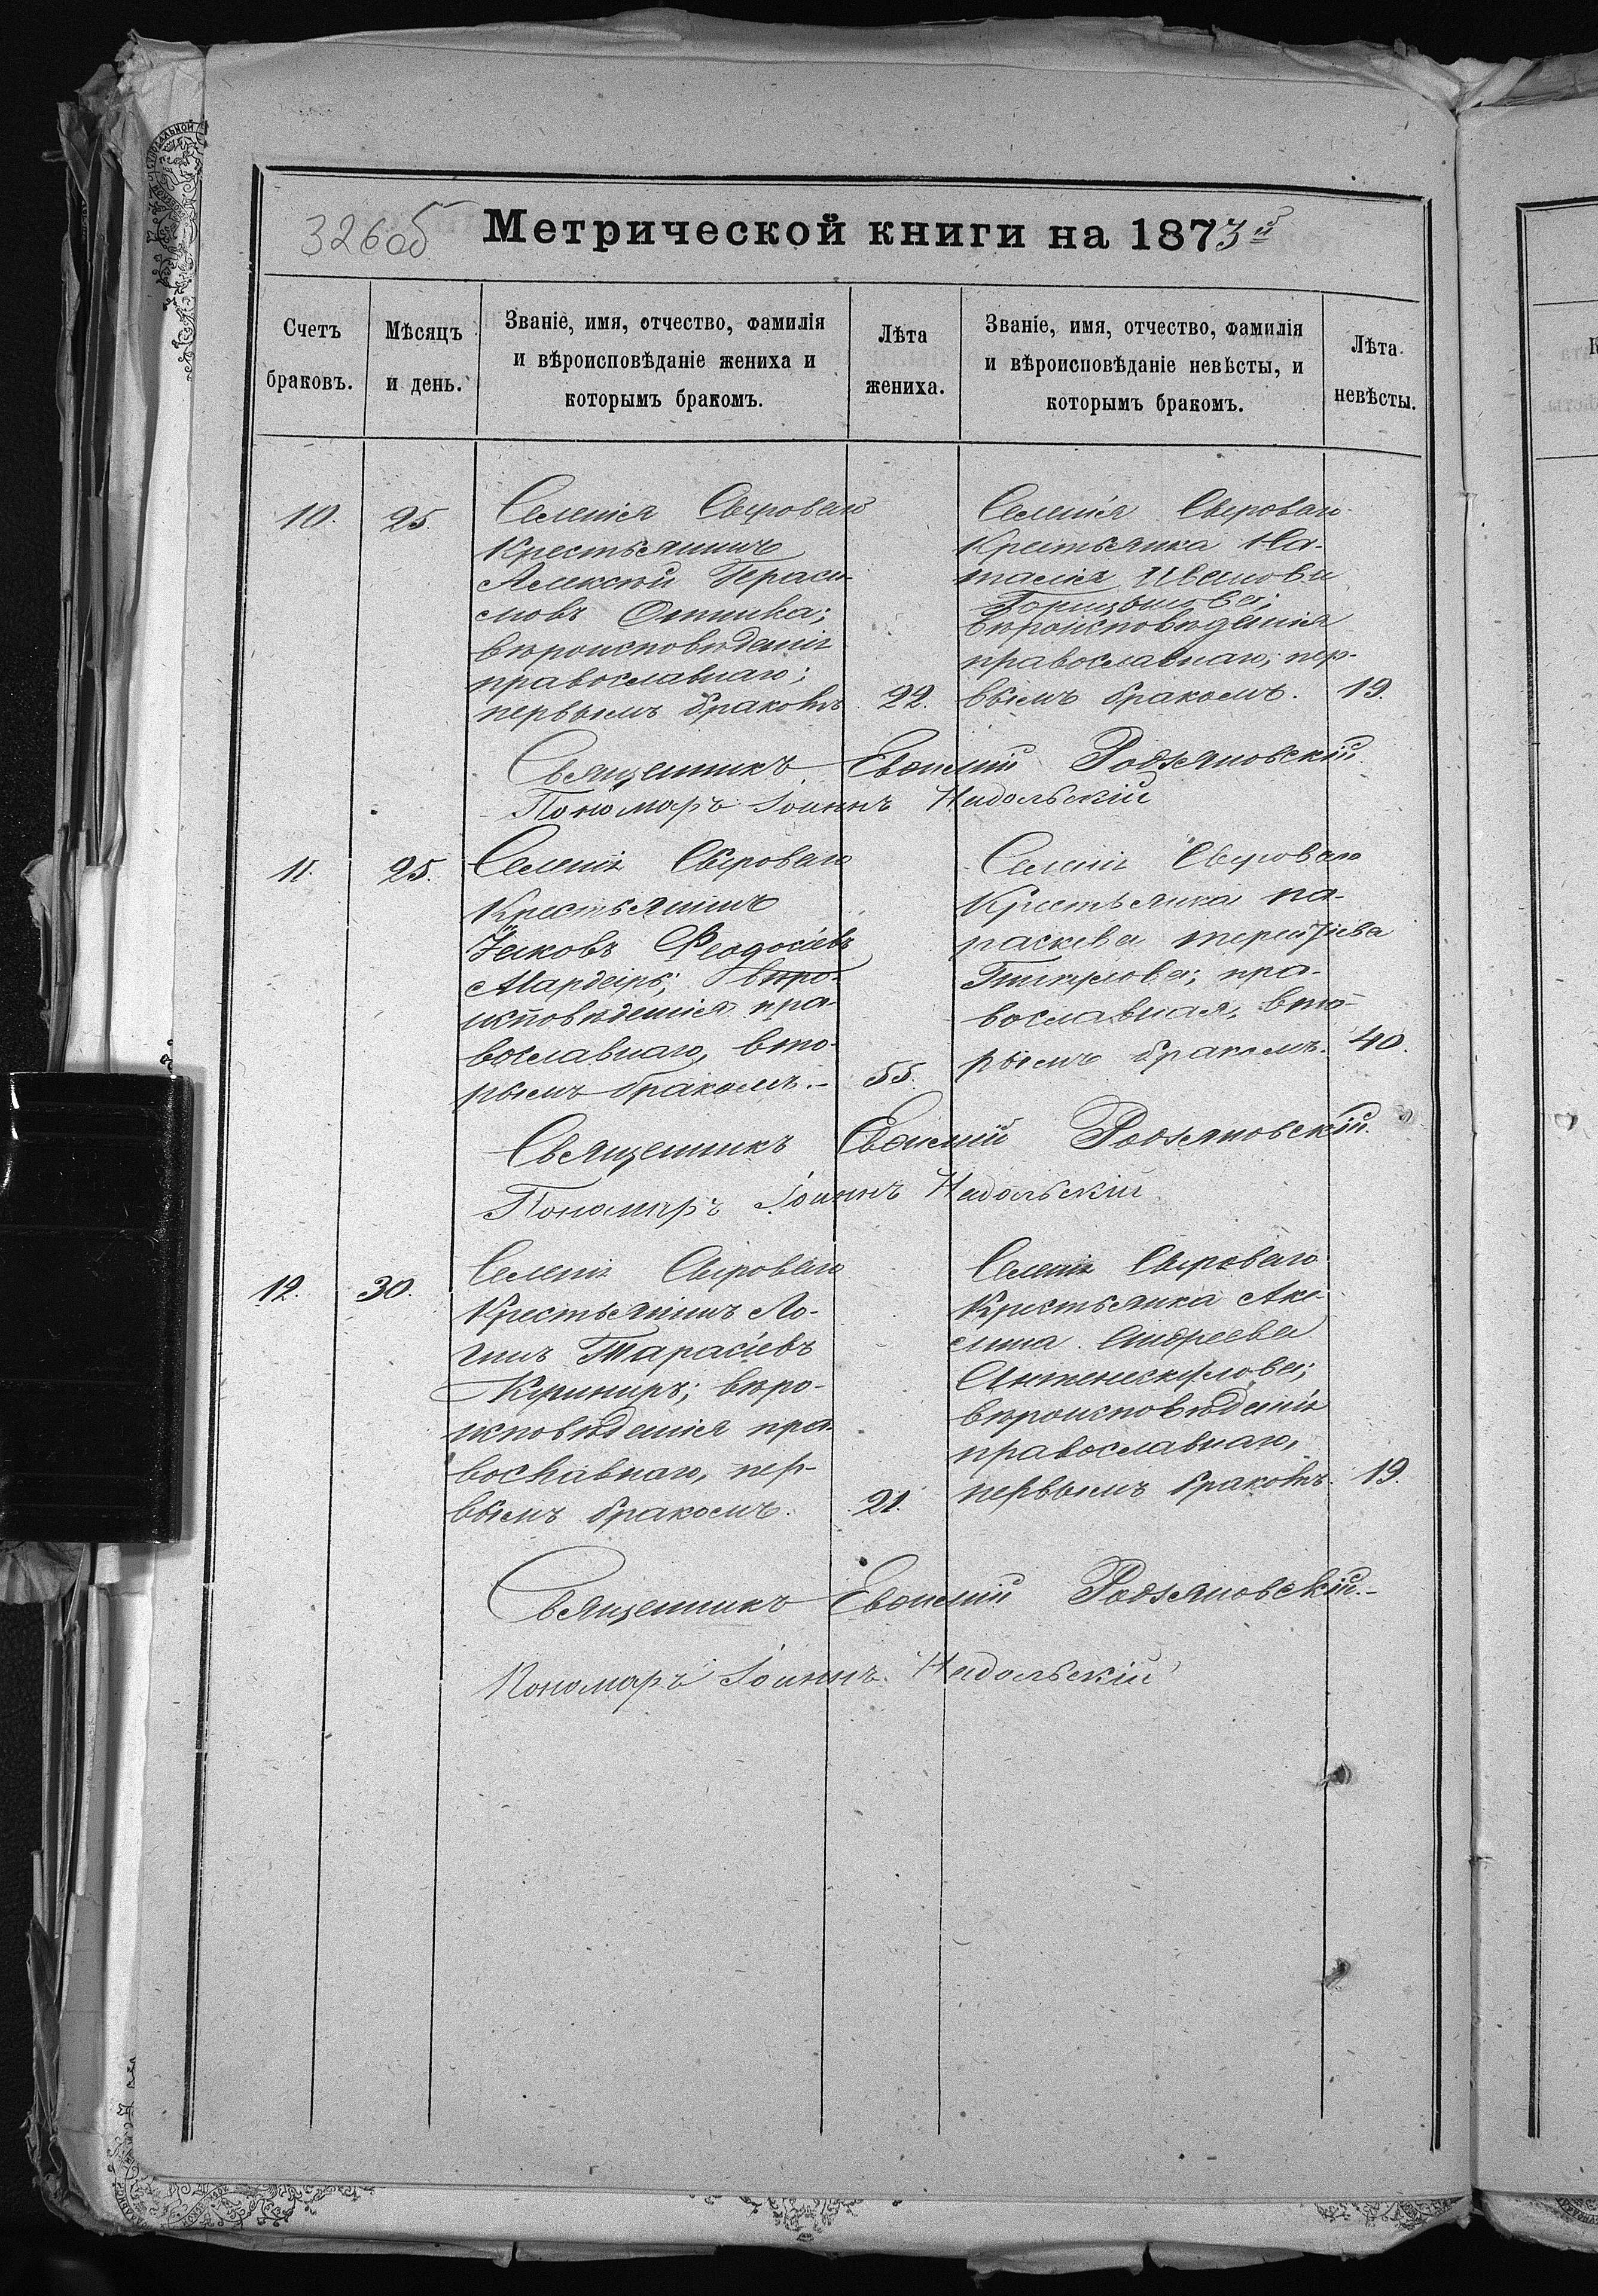 326об Метрической книги на 1873й
Счетъ браковъ.
Мѣсяцъ и день.
Званіе, имя, отчество, фамилія
и вѣроисповѣданіе жениха и
которымъ бракомъ.
Лѣта жениха.
Званіе, имя, отчество, фамилія
и вѣроисповѣданіе невѣсты, и
которымъ бракомъ.
Лѣта невѣсты.
10.
25.
Селенія Сыроваго
Крестьянинъ
Алексѣй Гераси-
мовъ
вѣроисповѣданія
православнаго;
первымъ бракомъ
22.
Селенія Сыроваго
Крестьянка На-
талія Иванова
вѣроисповѣданія
православнаго, пер-
вымъ бракомъ.
19.
Священникъ Евѳимій
Пономарь Іоаннъ Надольскій
11.
25.
Селенія Сыроваго
Крестьянинъ
Іаковъ Ѳеодосіевъ
Мардарь; вѣро-
исповѣданія пра-
вославнаго, вто-
рымъ бракомъ.-
55.
Селенія Сыроваго
Крестьянка Па-
раскева Терентіева
православная, вто-
рымъ бракомъ.
40.
Священникъ Евѳимій
Пономарь Іоаннъ Надольскій
12.
30.
Селенія Сыроваго
Крестьянинъ Ло-
гинъ Тарасіевъ
вѣро-
исповѣданія пра-
вославнаго, пер-
вымъ бракомъ.
21.
Селенія Сыроваго
Крестьянка Аке-
лина Андреева
вѣроисповѣданія
православнаго,
первымъ бракомъ.
19.
Священникъ Евѳимій
Пономарь Іоаннъ Надольскій